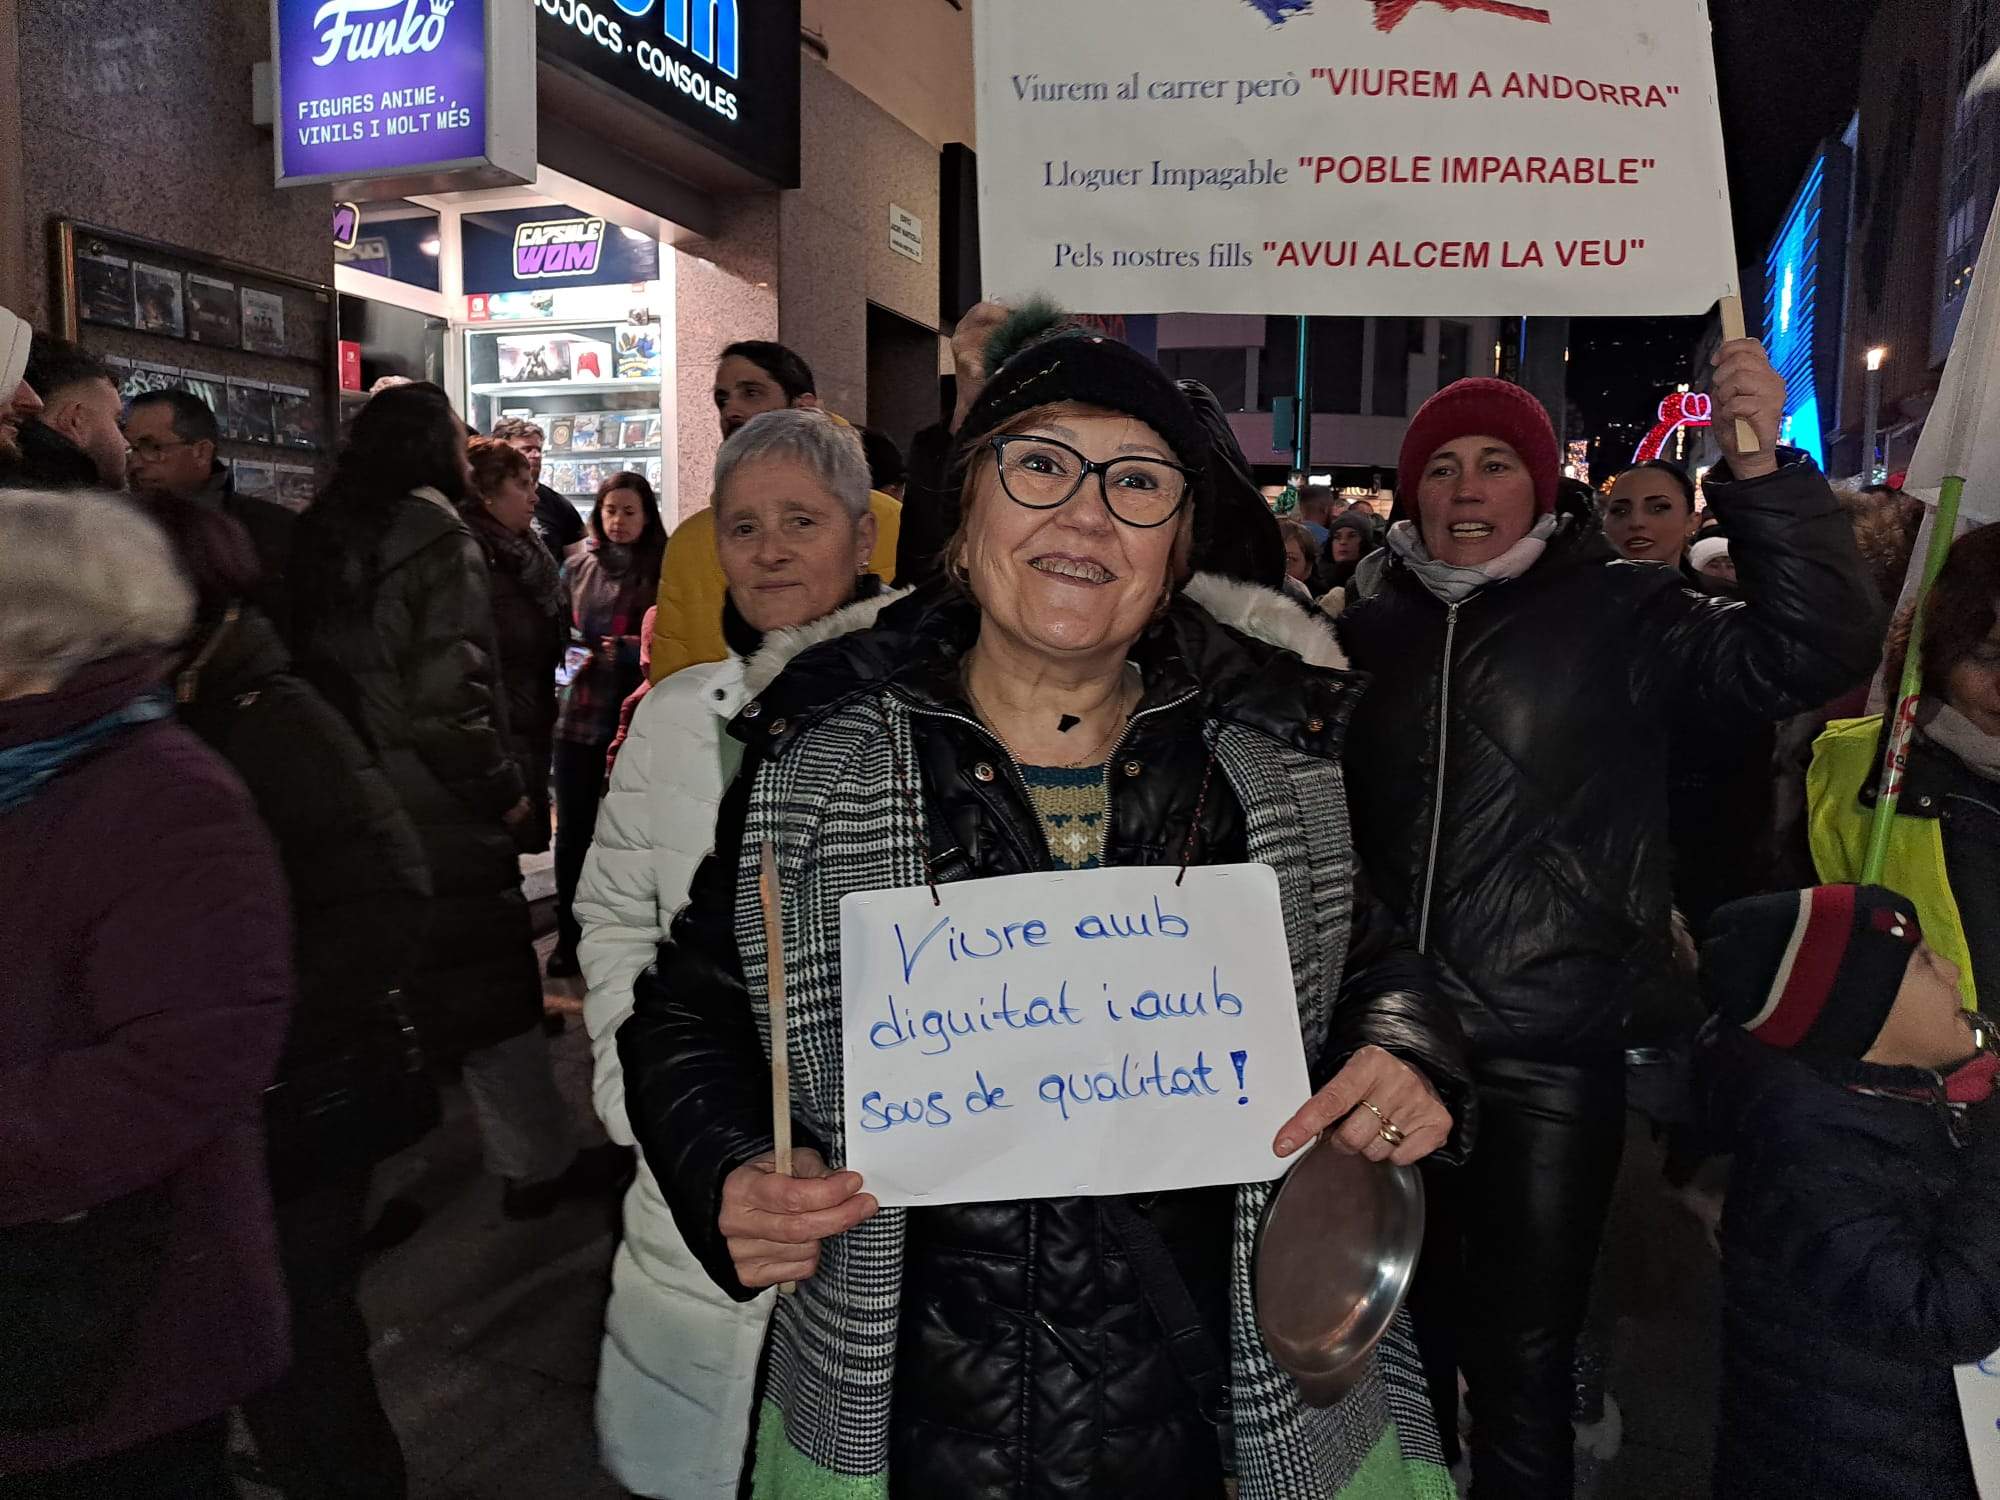 Funko
FIGURES ANIME,
VINILS I MOLT MÉS
CONSOLES
CAPSULE
WOM
Viurem al carrer però "VIUREM A ANDORRA"
Lloguer Impagable "POBLE IMPARABLE"
Pels nostres fills "AVUI ALCEM LA VEU"
Viure amb
diguitat i amb
sous de qualitat!